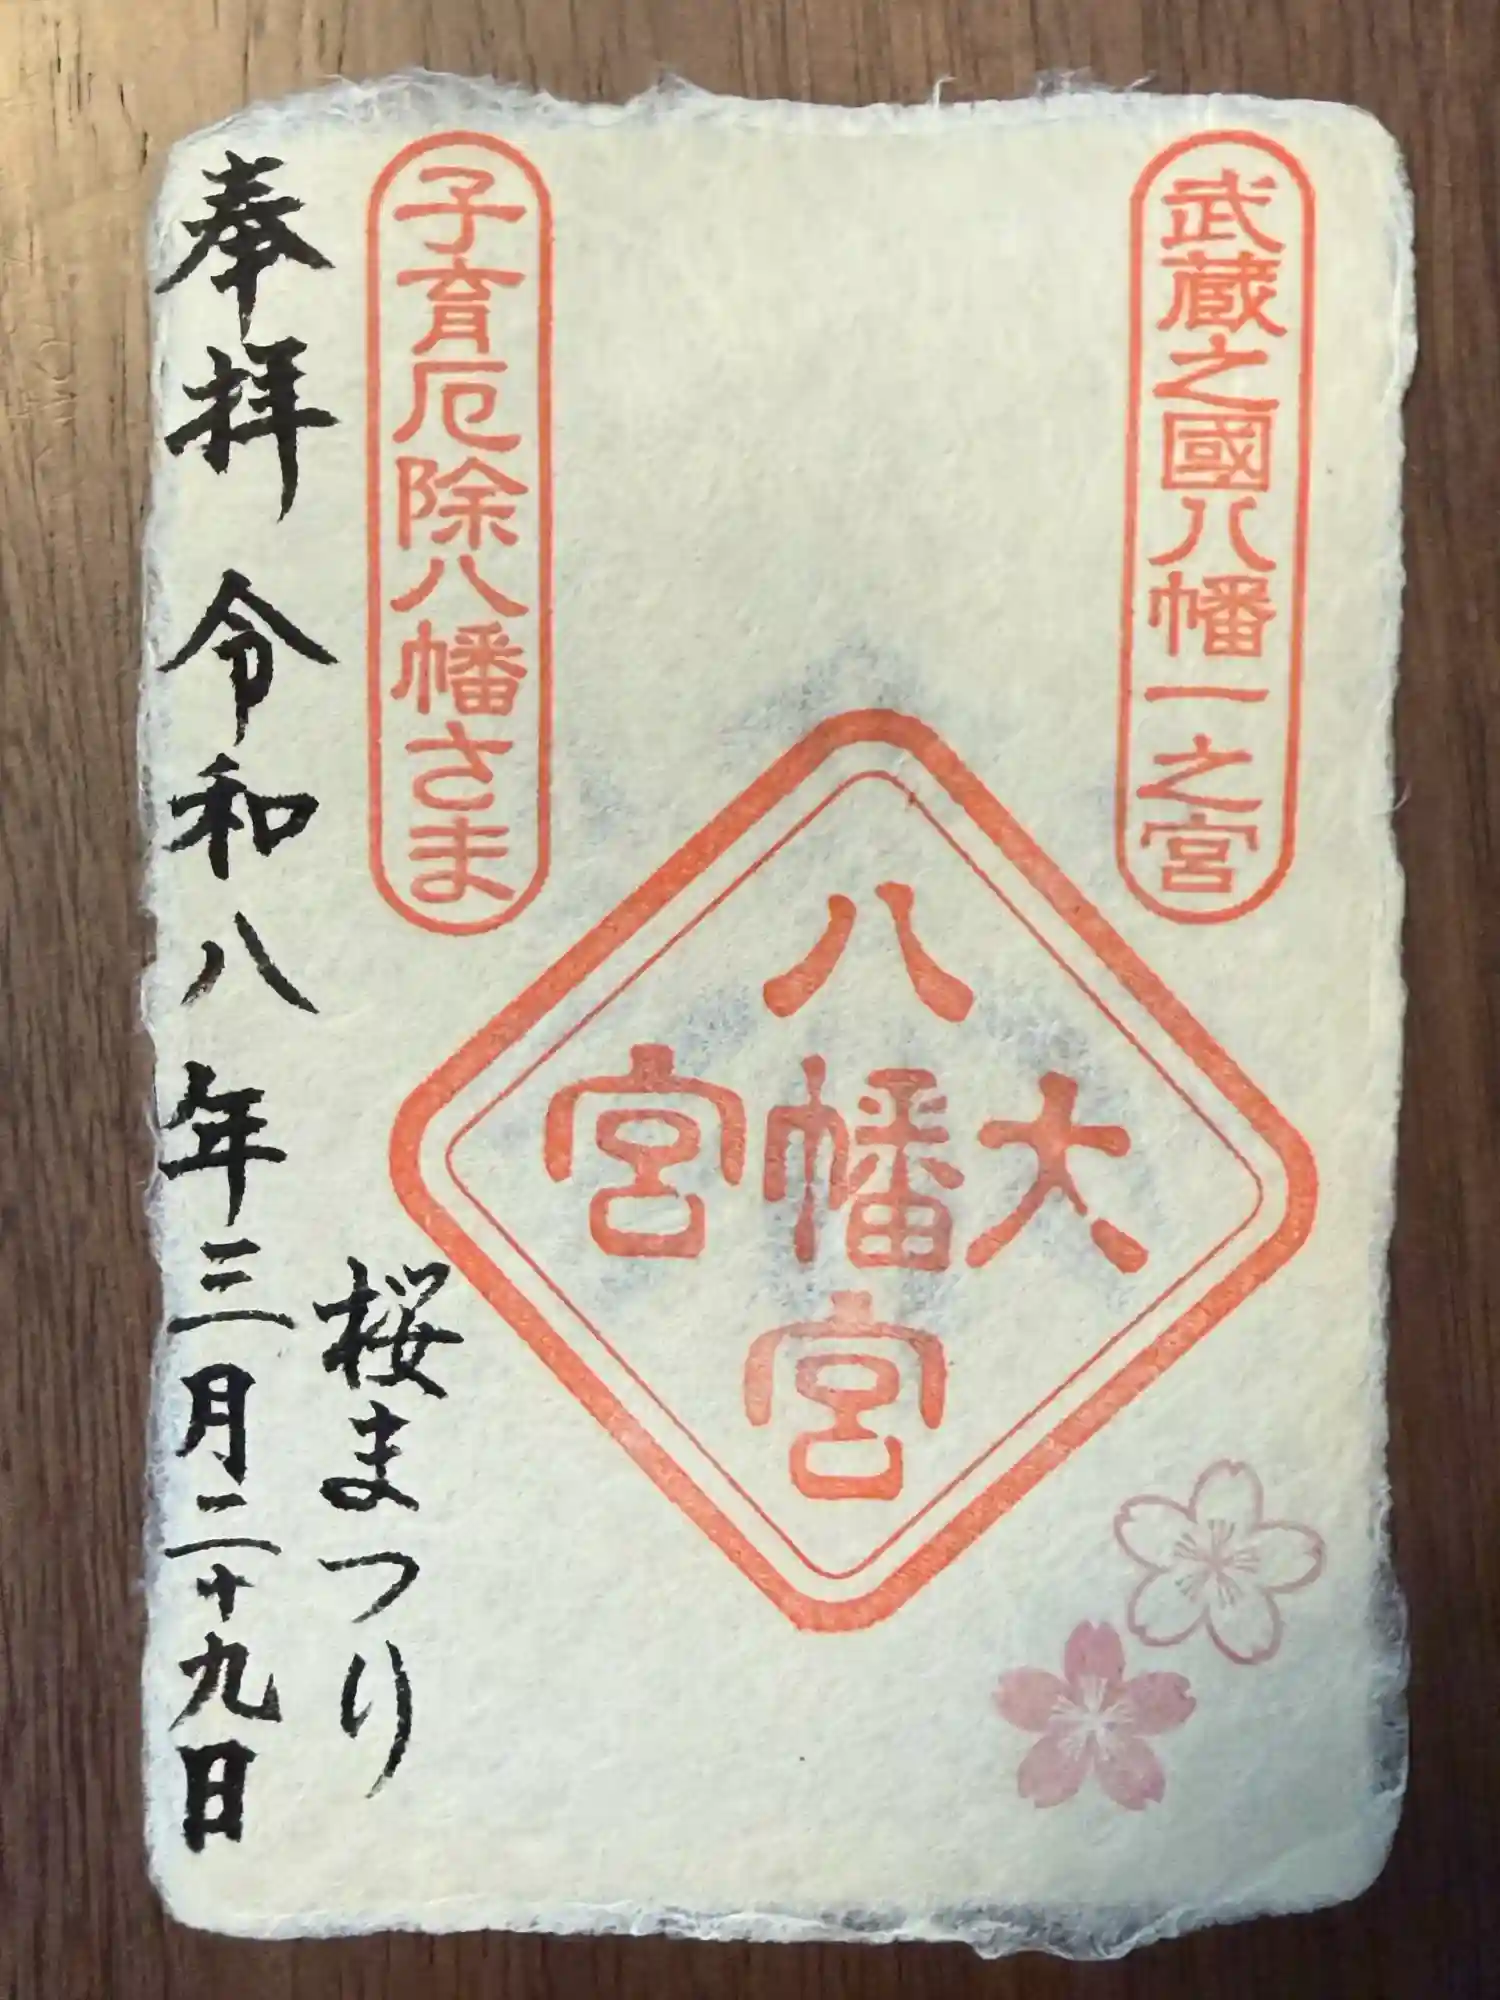 武蔵之國八幡一之宮
大宮
八幡宮
子育厄除八幡さま
桜まつり
奉拝 令和八年三月二十九日